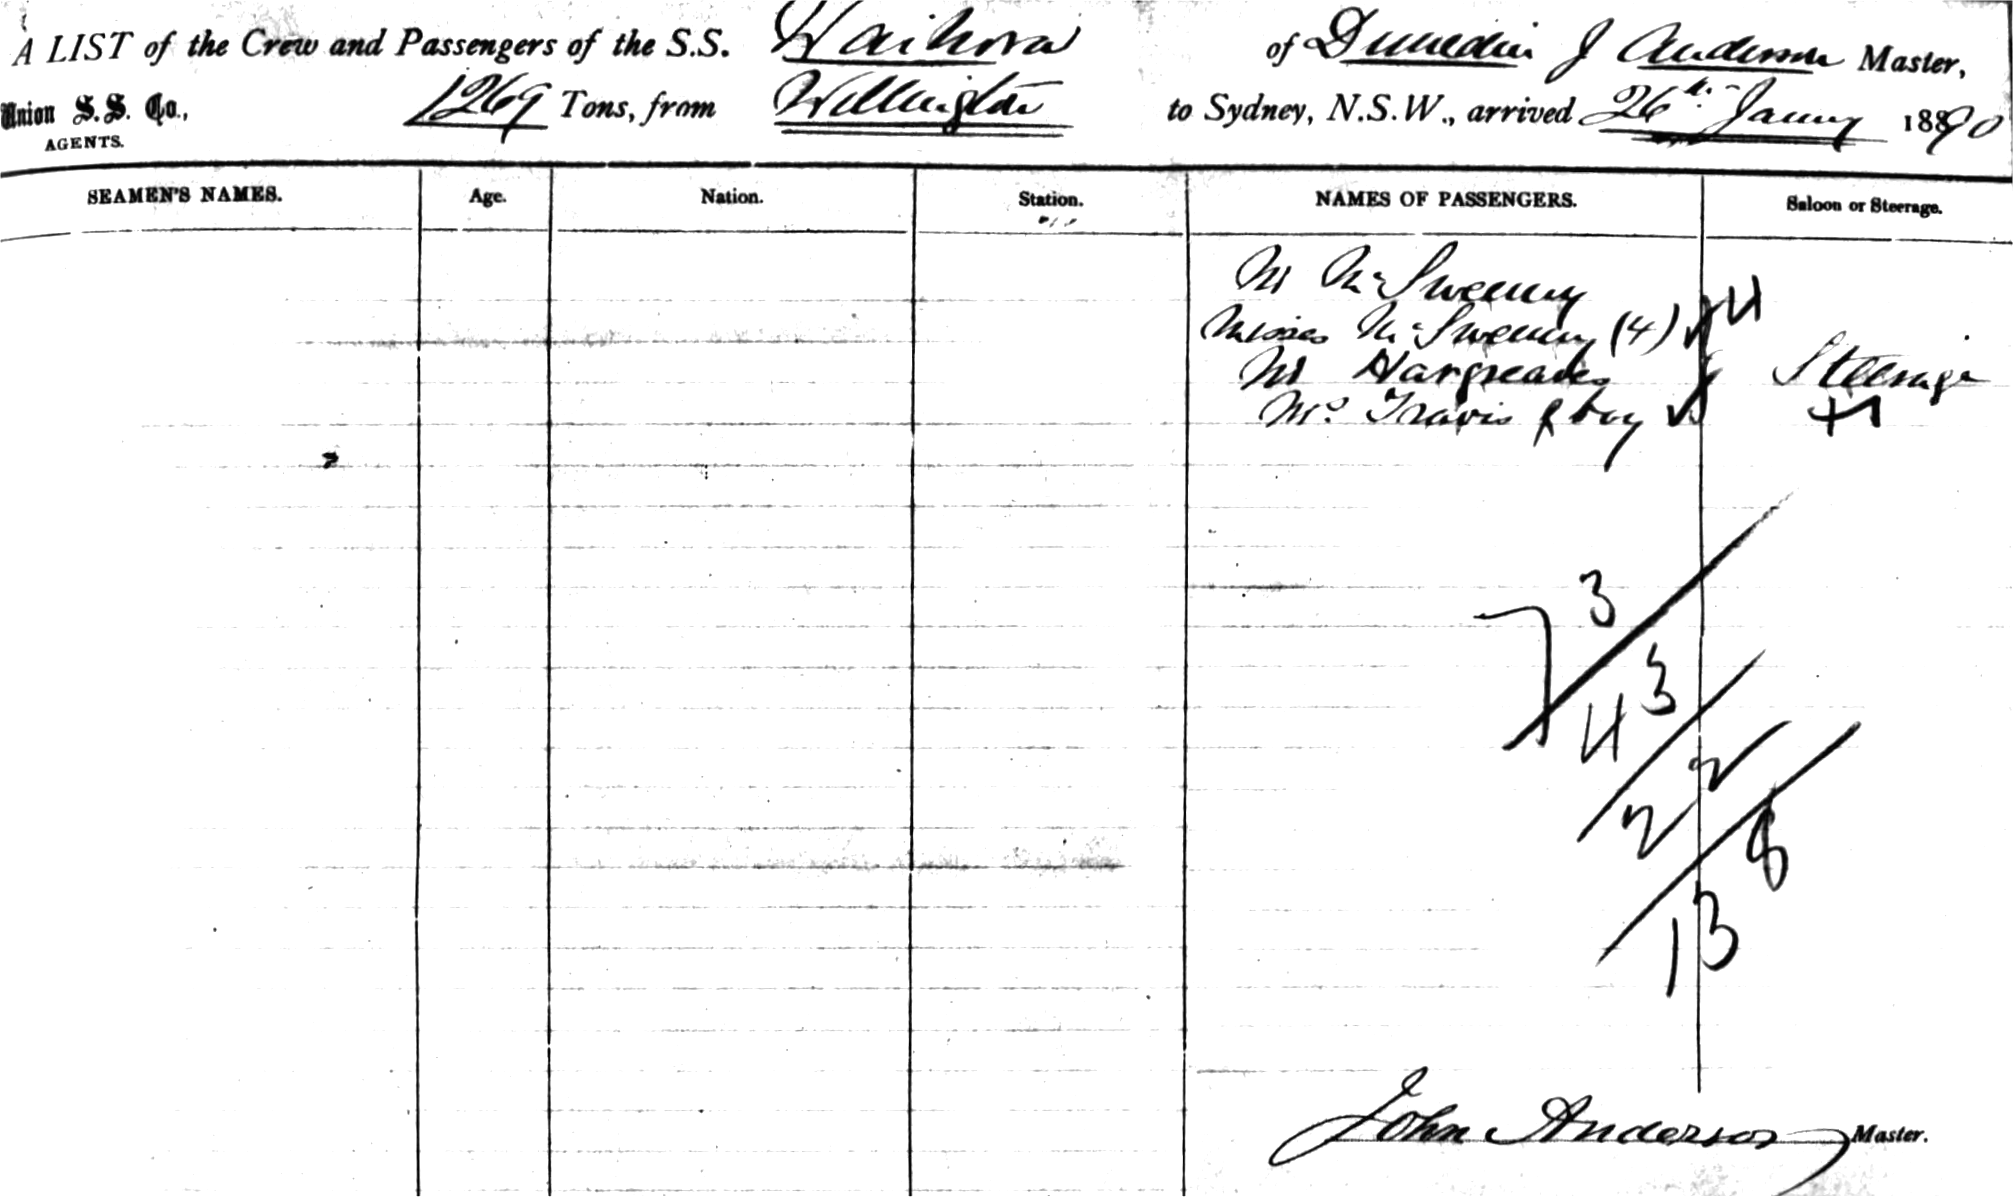 A LIST of the Crew and Passengers of the S.S. Waihora of Dunedin J Anderson Master,
Union S.S. Co., 1269 Tons, from Wellington to Sydney, N.S.W., arrived 26th Januy 1890
AGENTS.
SEAMEN'S NAMES. Age. Nation. Station. NAMES OF PASSENGERS. Saloon or Steerage.
Mr McSweeny
Misses McSweeny (4) 4
Mr Hargreaves Steerage
Mrs Travis & boy
3
7 3
4 2
2 8
13
John Anderson Master.